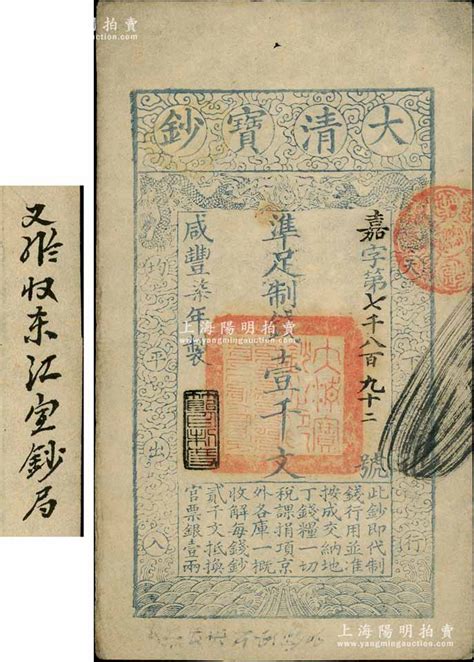 上海陽明拍賣
www.yangmingauction.com
大清寶鈔
天下
嘉字第七千八百九十二號
準足制錢壹千文
咸豐柒年製
均平出入
此鈔即代制
錢行用並准
按成交納地
丁錢糧一切
稅課捐項京
外各庫一概
收解每錢鈔
貳千文抵換
官票銀壹兩
行
收東江宝鈔局
上海陽明拍賣
www.yangmingauction.com
上海陽明拍賣
www.yangmingauction.com